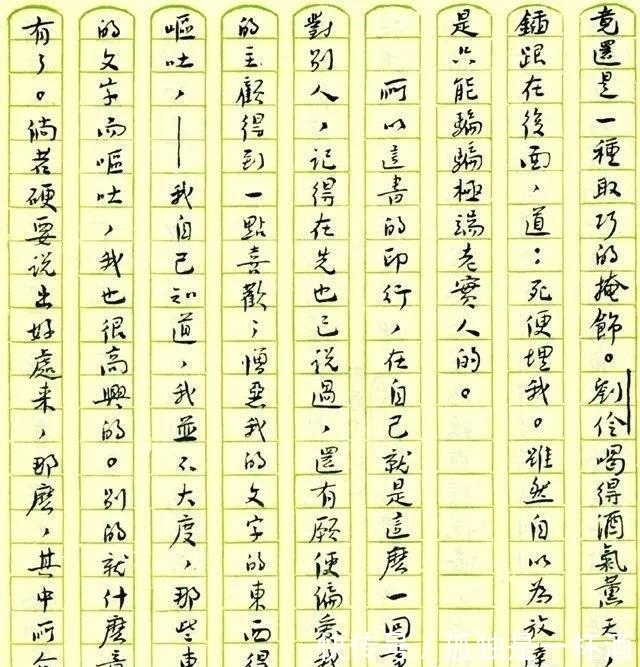 竟還是一種取巧的掩飾。劉伶喝得酒氣薰天,
鍤跟在後面,道:死便埋我。雖然自以為放達
是只能騙騙極端老實人的。
所以這書的印行,在自己就是這麼一回事
對別人,記得在先也已說過,還有願使偏愛我
的主顧得到一點喜歡;憎惡我的文字的東西得
嘔吐,——我自己知道,我並不大度,那些東
的文字而嘔吐,我也很高興的。別的就什麼意
有了。倘若硬要說出好處來,那麼,其中所
快传号/孤独是一杯酒